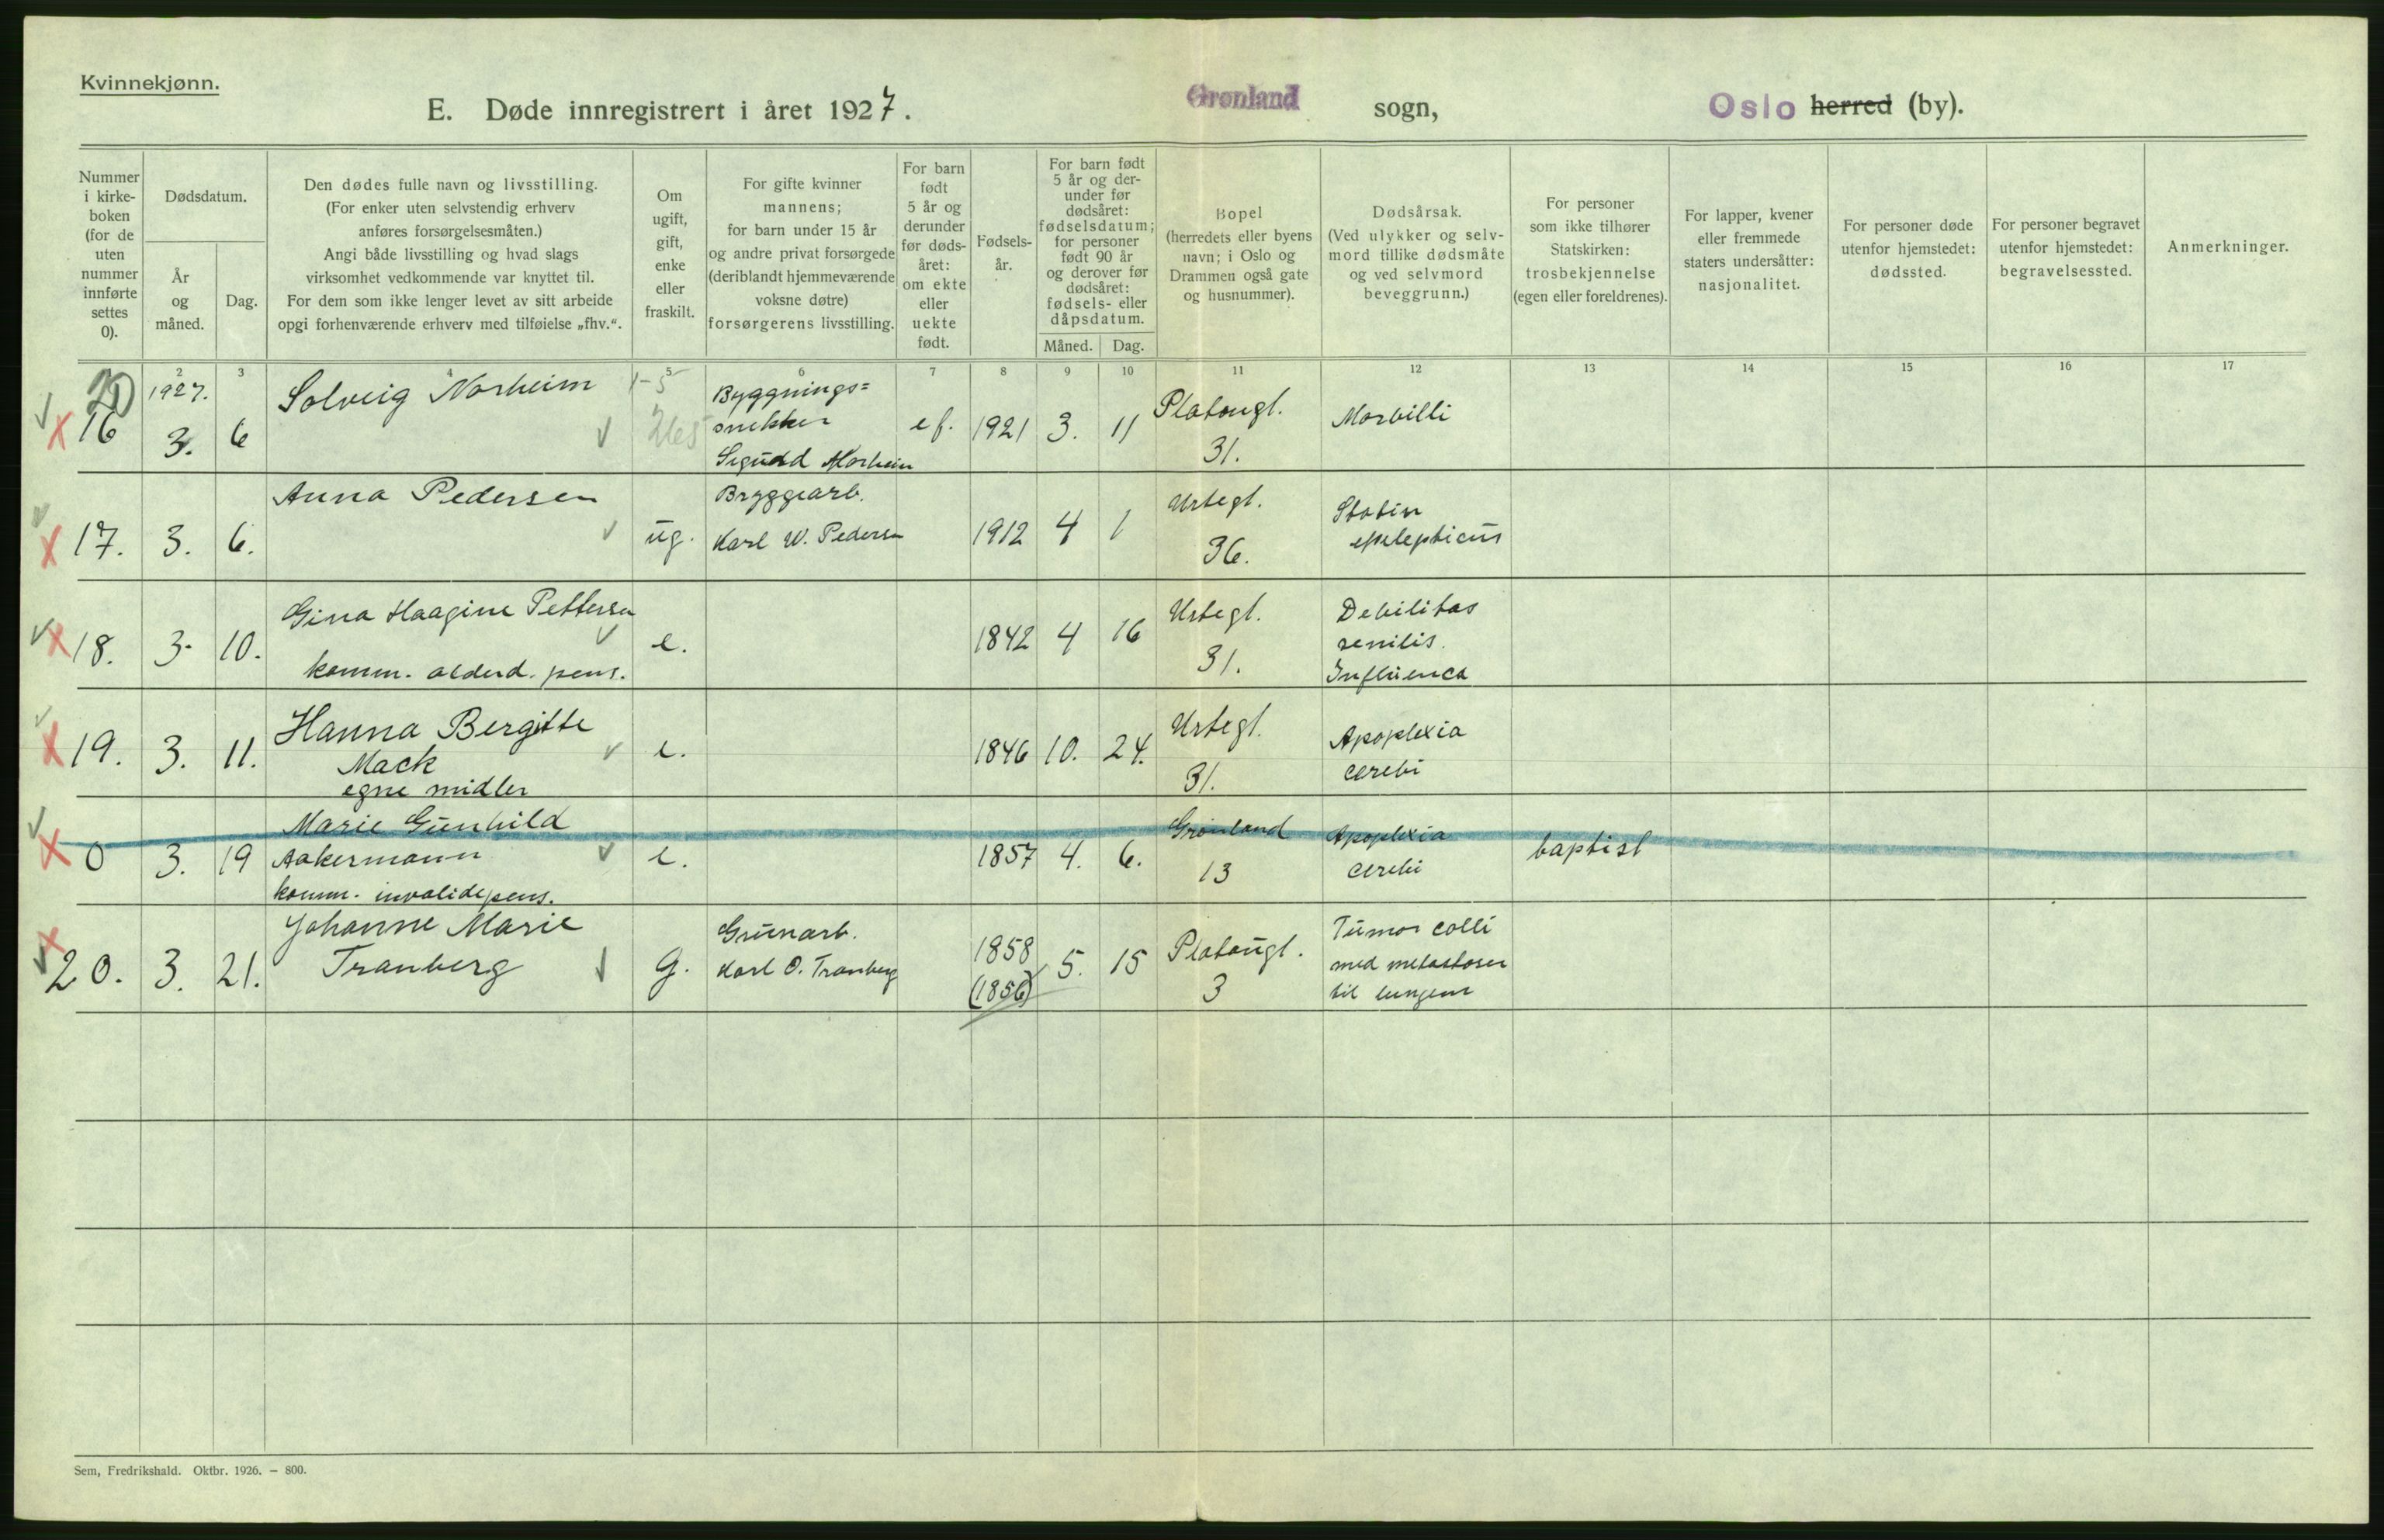 Kvinnekjønn.
E. Døde innregistrert i året 1927.
Grønland sogn,
Oslo herred (by).
Nummer i kirke- boken (for de uten nummer innførte settes 0).
Dødsdatum.
År og måned.
Dag.
Den dødes fulle navn og livsstilling.
(For enker uten selvstendig erhverv
anføres forsørgelsesmåten.)
Angi både livsstilling og hvad slags
virksomhet vedkommende var knyttet til.
For dem som ikke lenger levet av sitt arbeide
opgi forhenværende erhverv med tilføielse „fhv.“.
Om ugift, gift, enke eller fraskilt.
For gifte kvinner
mannens;
for barn under 15 år
og andre privat forsørgede
(deriblandt hjemmeværende
voksne døtre)
forsørgerens livsstilling.
For barn født 5 år og derunder før døds- året: om ekte eller uekte født.
Fødsels- år.
For barn født
5 år og der-
under før
dødsåret:
fødselsdatum;
for personer
født 90 år
og derover før
dødsåret:
fødsels- eller
dåpsdatum.
Måned. Dag.
Bopel
(herredets eller byens
navn; i Oslo og
Drammen også gate
og husnummer).
Dødsårsak.
(Ved ulykker og selv-
mord tillike dødsmåte
og ved selvmord
beveggrunn.)
For personer
som ikke tilhører
Statskirken:
trosbekjennelse
(egen eller foreldrenes).
For lapper, kvener
eller fremmede
staters undersåtter:
nasjonalitet.
For personer døde
utenfor hjemstedet:
dødssted.
For personer begravet
utenfor hjemstedet:
begravelsessted.
Anmerkninger.
2 3 4 5 6 7 8 9 10 11 12 13 14 15 16 17
20
16 1927. 3. 6 Solveig Norheim 1-5 Bygnings= snekker Sigurd Norheim ef. 1921 3. 11 Platougt. 31. Morbilli
17. 3. 6. Anna Pedersen ug. Bryggearb. Karl W. Pedersen 1912 4 1 Urtegt. 36. Statin epilepticus
18. 3. 10. Gina Haagine Pettersen komm. alderd. pens. e. 1842 4 16 Urtegt. 31. Debilitas senilis. Influenca
19. 3. 11. Hanna Bergitte Mack egne midler e. 1846 10. 24. Urtegt. 31. Apoplexia cerebi
0 3. 19 Marie Gunhild Aakermann komm. invalidepens. e. 1857 4. 6. Grønland 13 Apoplexia cerebi baptist
20. 3. 21. Johanne Marie Tranberg g. Grunarb. Karl O. Tranberg 1858 (1856) 5. 15 Platougt. 3 Tumor colli med metastaser til lungene
Sem, Fredrikshald. Oktbr. 1926. – 800.